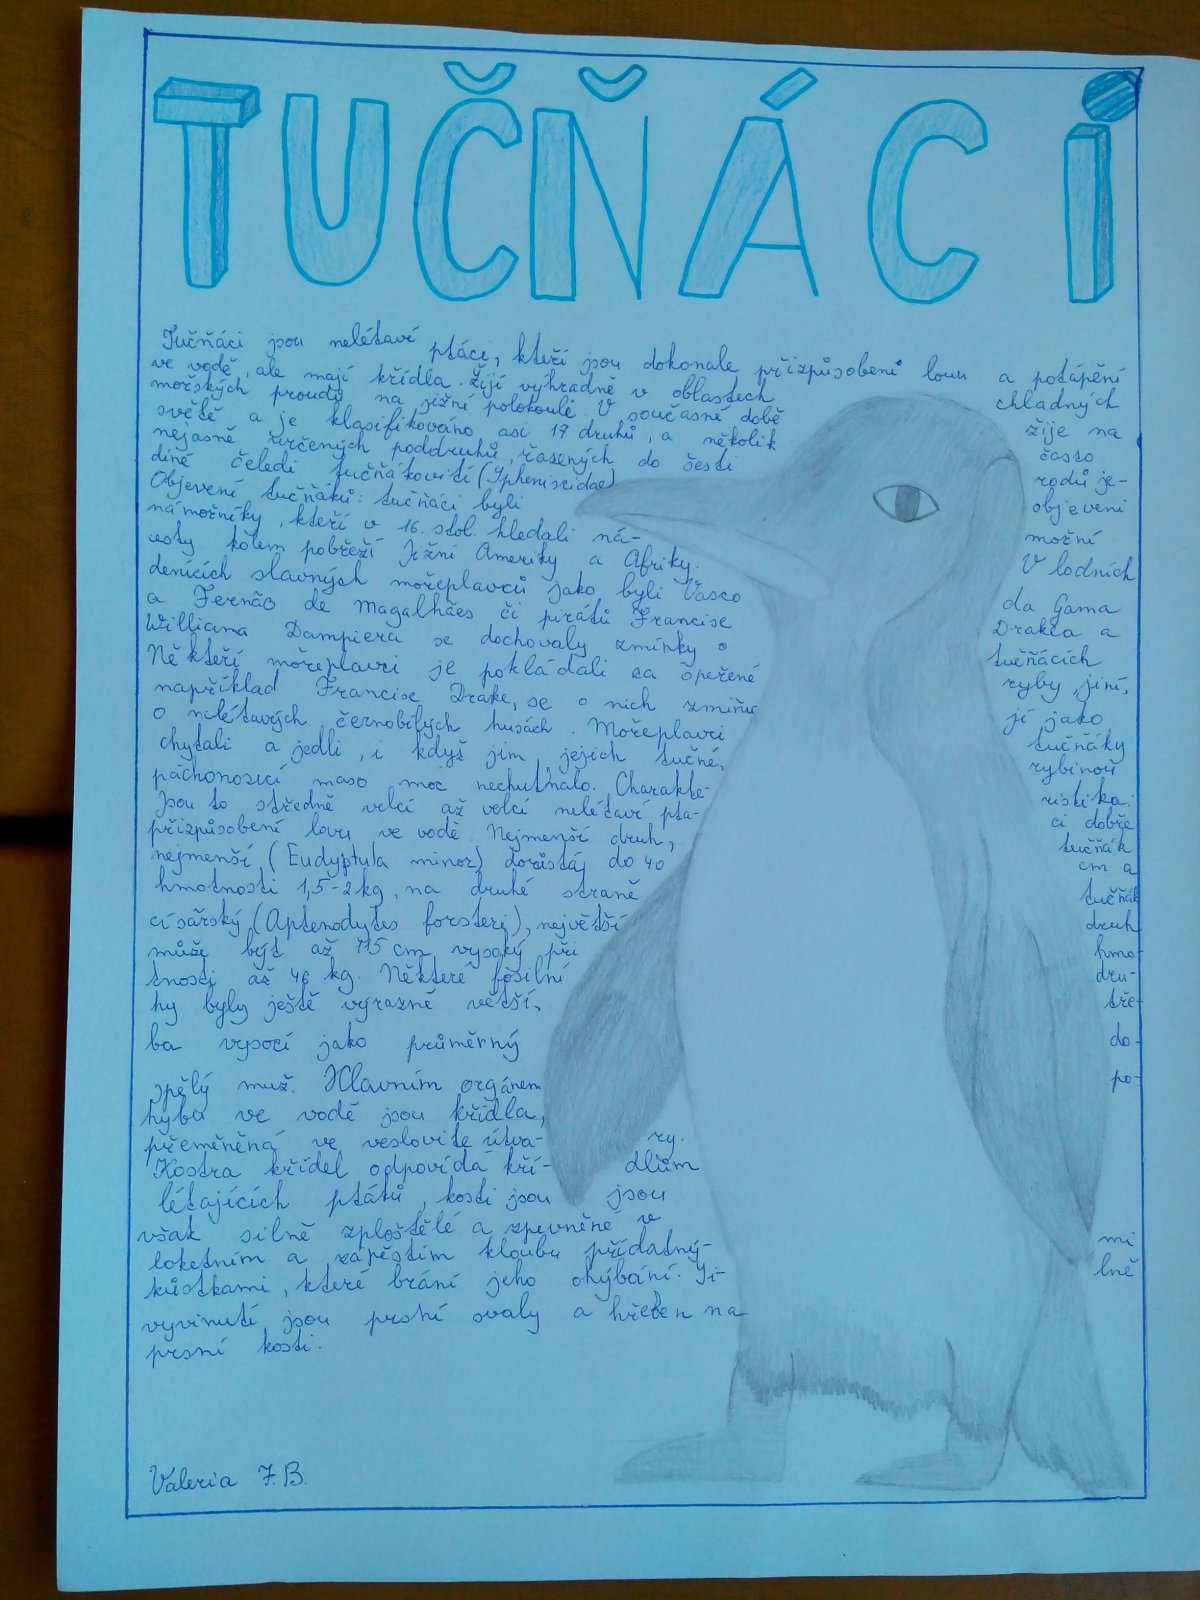 TUČŇÁCI
Tučňáci jsou nelétaví ptáci, kteří jsou dokonale přizpůsobení lovu a potápění
ve vodě, ale mají křídla. Žijí výhradně v oblastech chladných
mořských proudů na jižní polokouli. V současné době žije na
světě a je klasifikováno asi 17 druhů, a několik často
nejasně určených poddruhů, řazených do šesti rodů je-
diné čeledi tučňákovití (Spheniscidae)
Objevení tučňáků: tučňáci byli objeveni
námořníky, kteří v 16. stol. hledali ná- možní
cesty kolem pobřeží Jižní Ameriky a Afriky. V lodních
denících slavných mořeplavců jako byli Vasco da Gama
a Fernão de Magalhães či pirátů Francise Drakea a
Williama Dampiera se dochovaly zmínky o tučňácích
Někteří mořeplavci je pokládali za opeřené ryby, jiní,
například Francise Drake, se o nich zmiňu jí jako
o nelétavých černobílých husách. Mořeplavci tučňáky
chytali a jedli, i když jim jejich tučné, rybinou
páchonosící maso moc nechutnalo. Charakte- ristika:
Jsou to středně velcí až velcí nelétaví ptá- ci dobře
přizpůsobení lovu ve vodě. Nejmenší druh, tučňák
nejmenší (Eudyptula minor) dorůstáj do 40 cm a
hmotnosti 1,5-2 kg, na druhé straně tučňák
císařský (Aptenodytes forsteri), největší druh
může být až 115 cm vysoký při hmo-
tnosti až 46 kg. Některé fosilní dru-
hy byly ještě výrazně větší, tře-
ba vysocí jako průměrný do-
spělý muž. Hlavním orgánem po-
hybu ve vodě jsou křídla,
přeměněná ve veslovite útva- ry.
Kostra křídel odpovídá kří- dlům
létajících ptáků, kosti jsou jsou
však silně zploštělé a zpevněné v
loketním a zápěstím kloubu přídatný- mi
kůstkami, které brání jeho ohýbání. Si- lně
vyvinutí jsou prsní svaly a hřeben na
prsní kosti.
Valeria F.B.